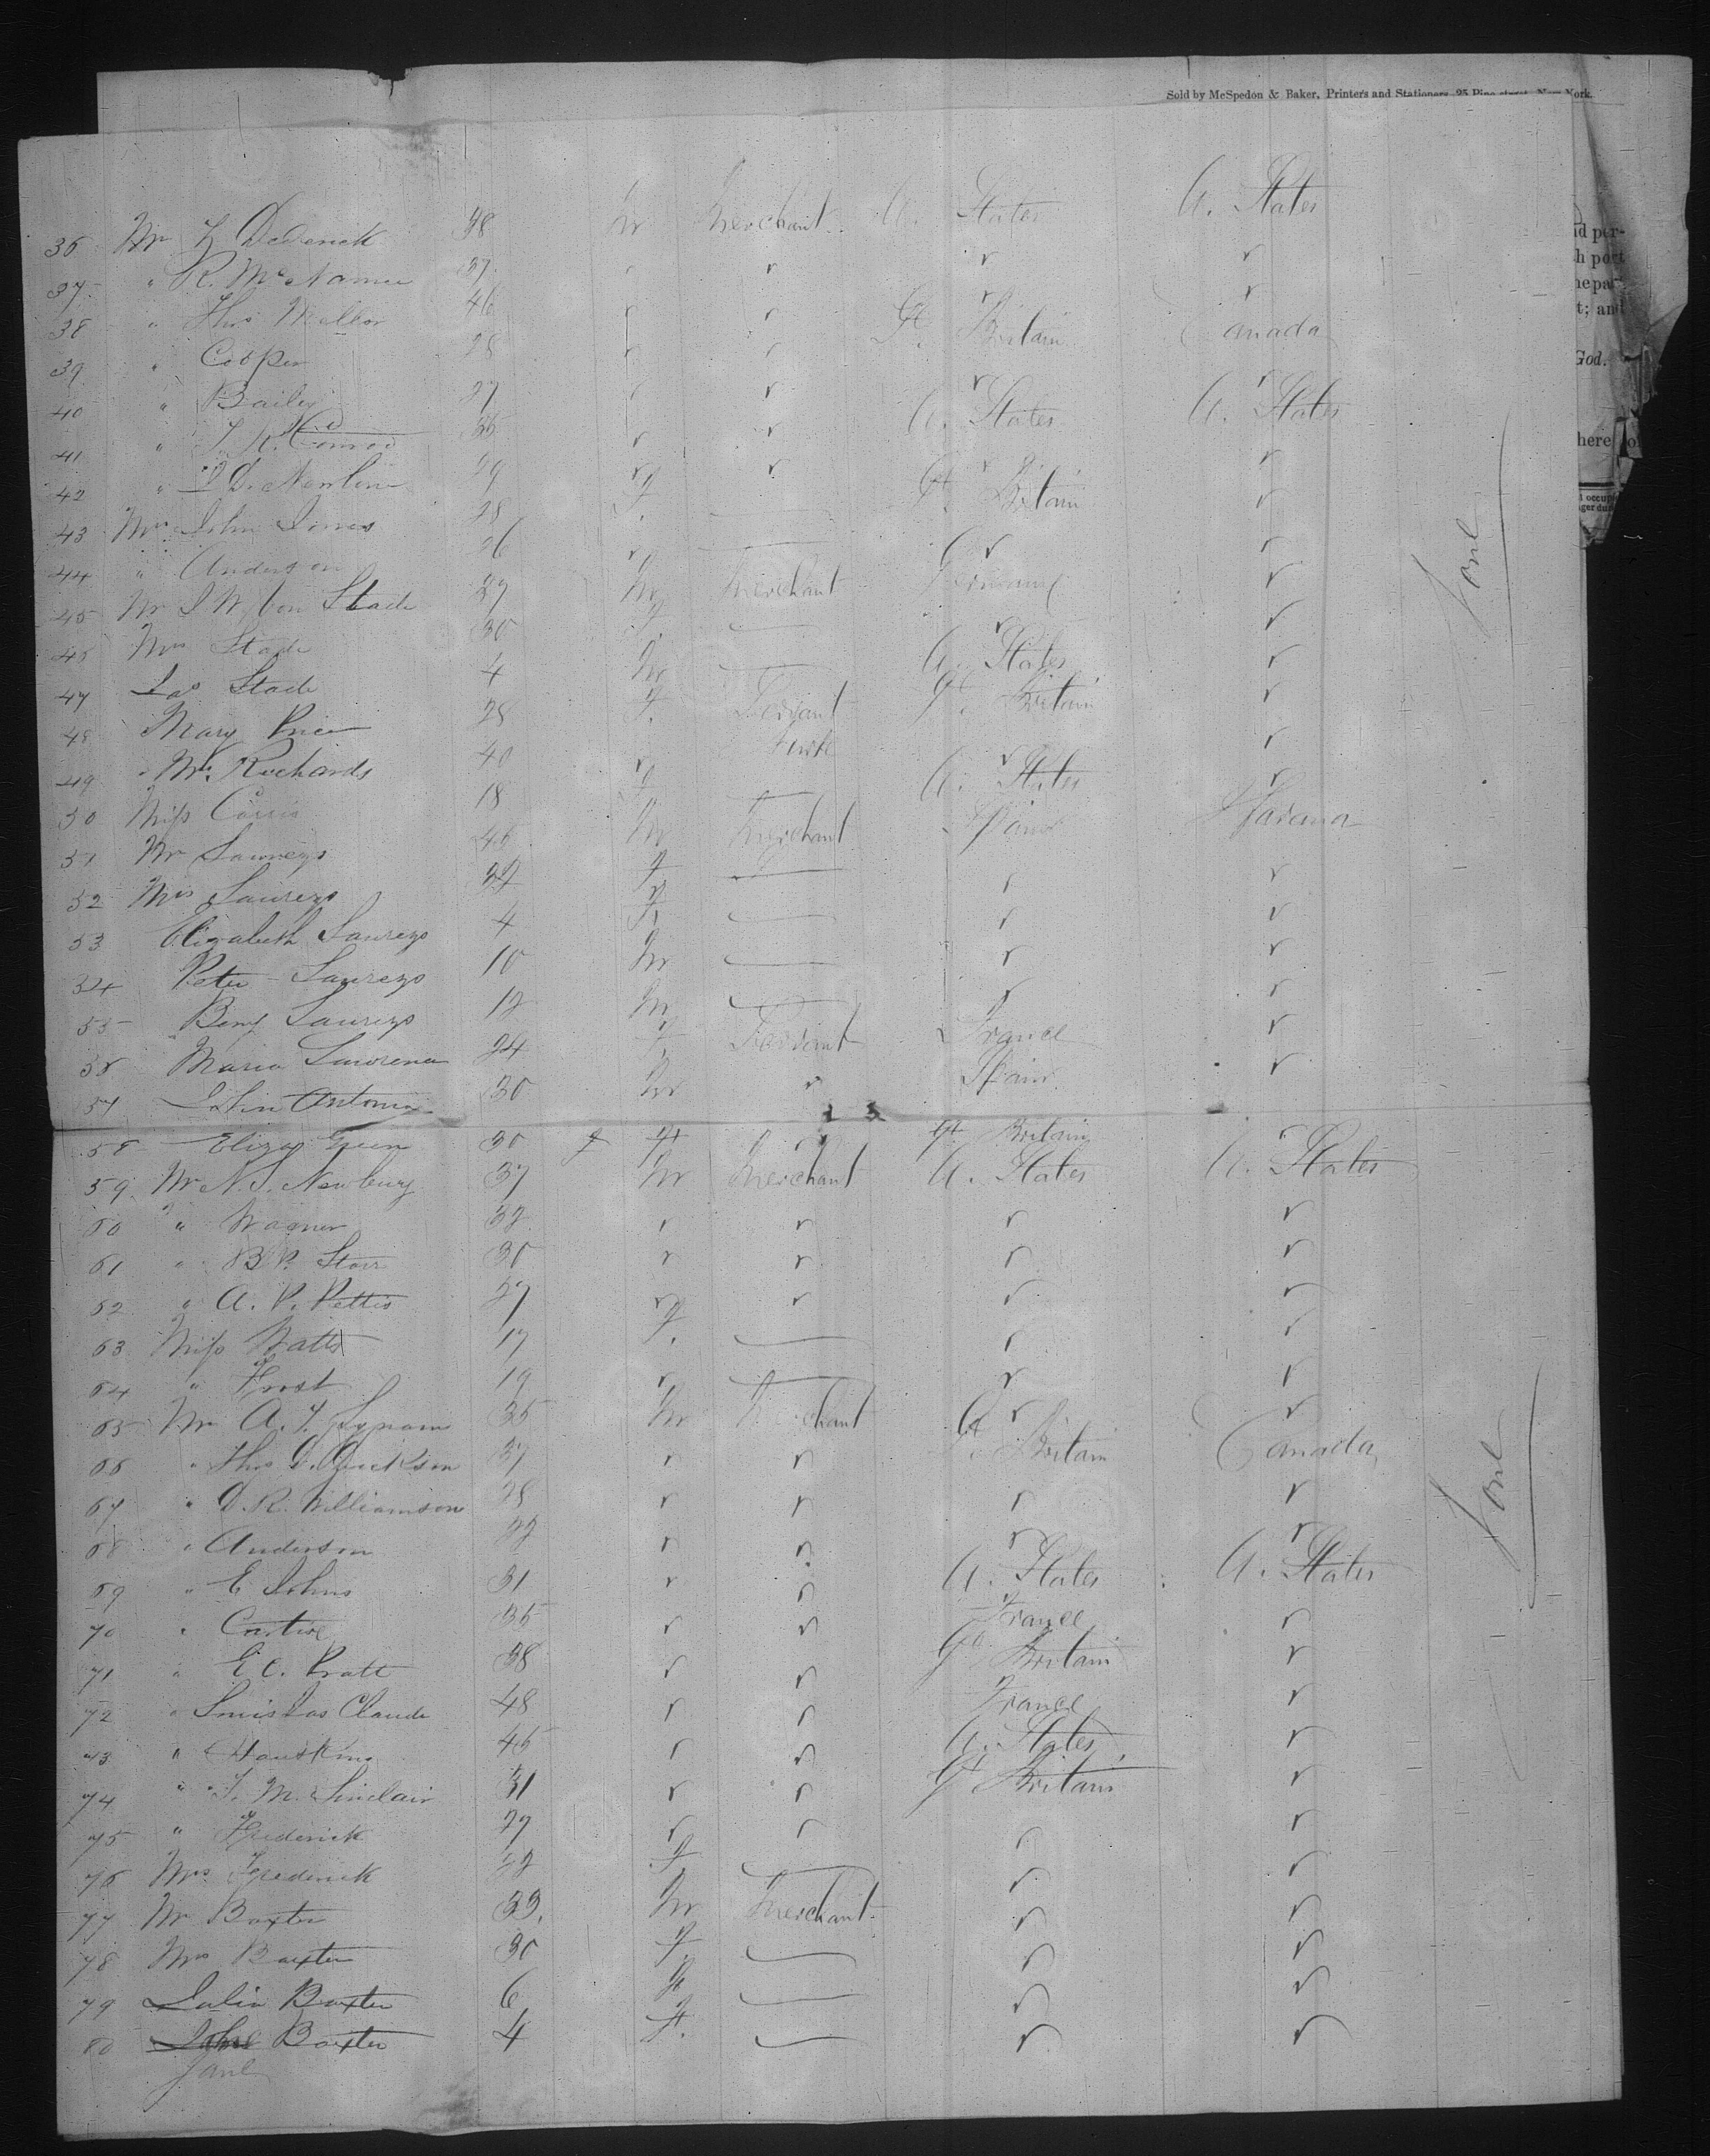 Sold by McSpedon & Baker, Printers and Stationers, 25 Pine street, New York.
36 Mr Dederick 38 m Merchant U. States U. States
37 " R. McNamee 37 " " " "
38 " Thos Mellor 46 " " " "
39 " Cooper 28 " " Gt Britain Canada
40 " Bailey 27 " " " "
41 " T. K. Conrod 36 " " U. States U. States
42 " Newlin 29 " " " "
43 Mrs John Jones 28 f. — Gt Britain "
44 " Anderson 26 " — " "
45 Mr Von Stade 37 m Merchant Germany "
46 Mrs Stade 30 f. — " "
47 Jas Stade 4 m — U. States "
48 Mary Price 28 f. Servant Gt Britain "
49 Richards 40 " " "
50 Miss 18 f — U. States "
51 Mr Saurezo 46 m Merchant Spain Havana
52 Mrs Saurezo 32 f — " "
53 Elizabeth Saurezo 4 f. — " "
54 Peter Saurezo 10 m — " "
55 Benj Saurezo 12 m — " "
56 Maria 24 f Servant France "
57 John Antonio 30 m " Spain "
58 Eliza Green 30 f " Gt Britain "
59 Mr N. S. Newbury 37 m Merchant U. States U. States
60 " Wagner 32 " " " "
61 " B P. Storr 30 " " " "
62 " A. P. Pettis 27 " " " "
63 Miss Watts 17 f. — " "
64 " Frost 19 " — " "
65 Mr A. 35 m Merchant " "
66 " Thos Dickson 37 " " Gt Britain Canada
67 " D. R. Williamson 28 " " " "
68 " Anderson 22 " " " "
69 " E Johns 31 " " U. States U. States
70 " 35 " " France "
71 " E. C. Pratt 38 " " Gt Britain "
72 " Claude 48 " " France "
73 " 45 " " U. States "
74 " T. M. Sinclair 31 " " Gt Britain "
75 " Frederick 27 " " " "
76 Mrs Frederick 22 f — " "
77 Mr Baxter 33. m Merchant " "
78 Mrs Baxter 30 f. — " "
79 Julia Baxter 6 " — " "
80 Baxter 4 f. — " "
Jane
id per-
h port
he par-
t; and
God.
here of